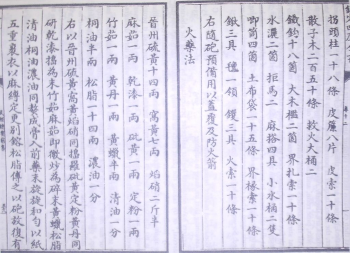 拐頭柱一十八條 皮簾八片 皮索一十條
散子木二百五十條 救火大桶二
鐵鈎十八箇 大木櫃二箇 界扎索一十條
水灑二箇 拒馬二 麻搭四具 小水桶二隻
唧筒四箇 土布袋一十五條 界椽索一十條
鍬三具 氊領 钁三具 火索一十條
右隨砲預備用以蓋覆及防火箭
火藥法
晉州硫黃十四兩 窩黃七兩 焰硝二斤半
麻茹一兩 乾漆一兩 砒黃一兩 定粉一兩
竹茹一兩 黃丹一兩 黃蠟半兩 清油一分
桐油半兩 松脂一十四兩 濃油一分
右以晉州硫黃窩黃焰硝同搗羅砒黃定粉黃丹同
研乾漆搗為末竹茹麻茹即微炒為碎末黃蠟松脂
清油桐油濃油同熬成膏入前藥末旋旋和勻以紙
五重裹衣以麻縛定更別鎔松脂傅之以砲放復有